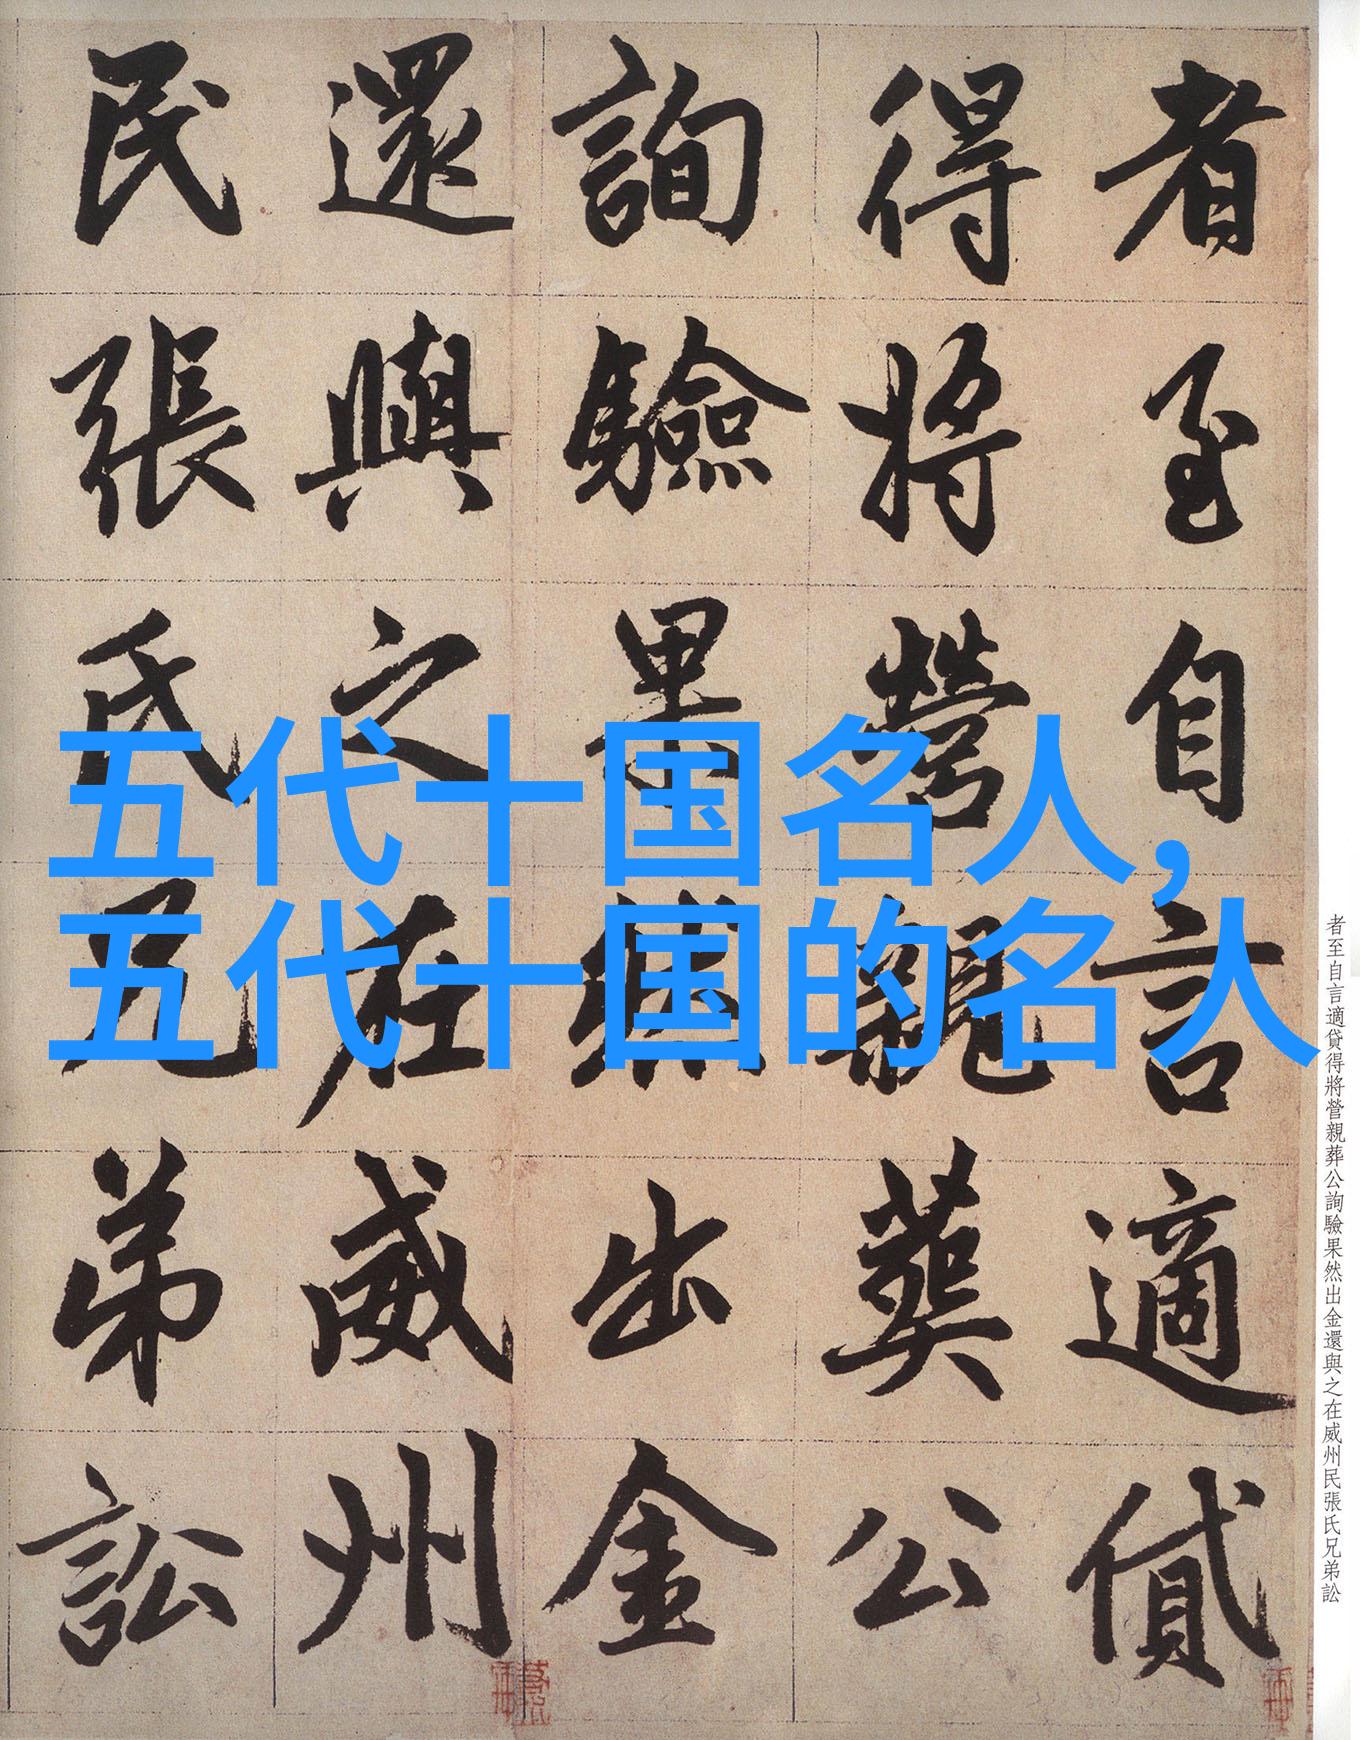 五代十国名人,
五代十国的名人
者至自言適貸
得將營親葬公
詢驗果然出金
還與之在威州
民張氏兄弟訟
者至自言適貸得將營親葬公詢驗果然出金還與之在威州民張氏兄弟訟